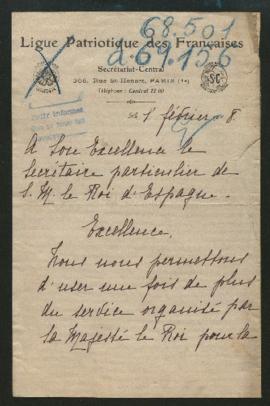 68.501
d.69.156
Ligue Patriotique des Françaises
Secrétariat-Central
368, Rue St Honoré, PARIS (1er)
Téléphone : Central 22 00
1 février 8.
A Son Excellence le
Secrétaire particulier de
S. M. le Roi d'Espagne.
Excellence,
Nous nous permettons
d'user une fois de plus
du service organisé par
Sa Majesté le Roi pour la